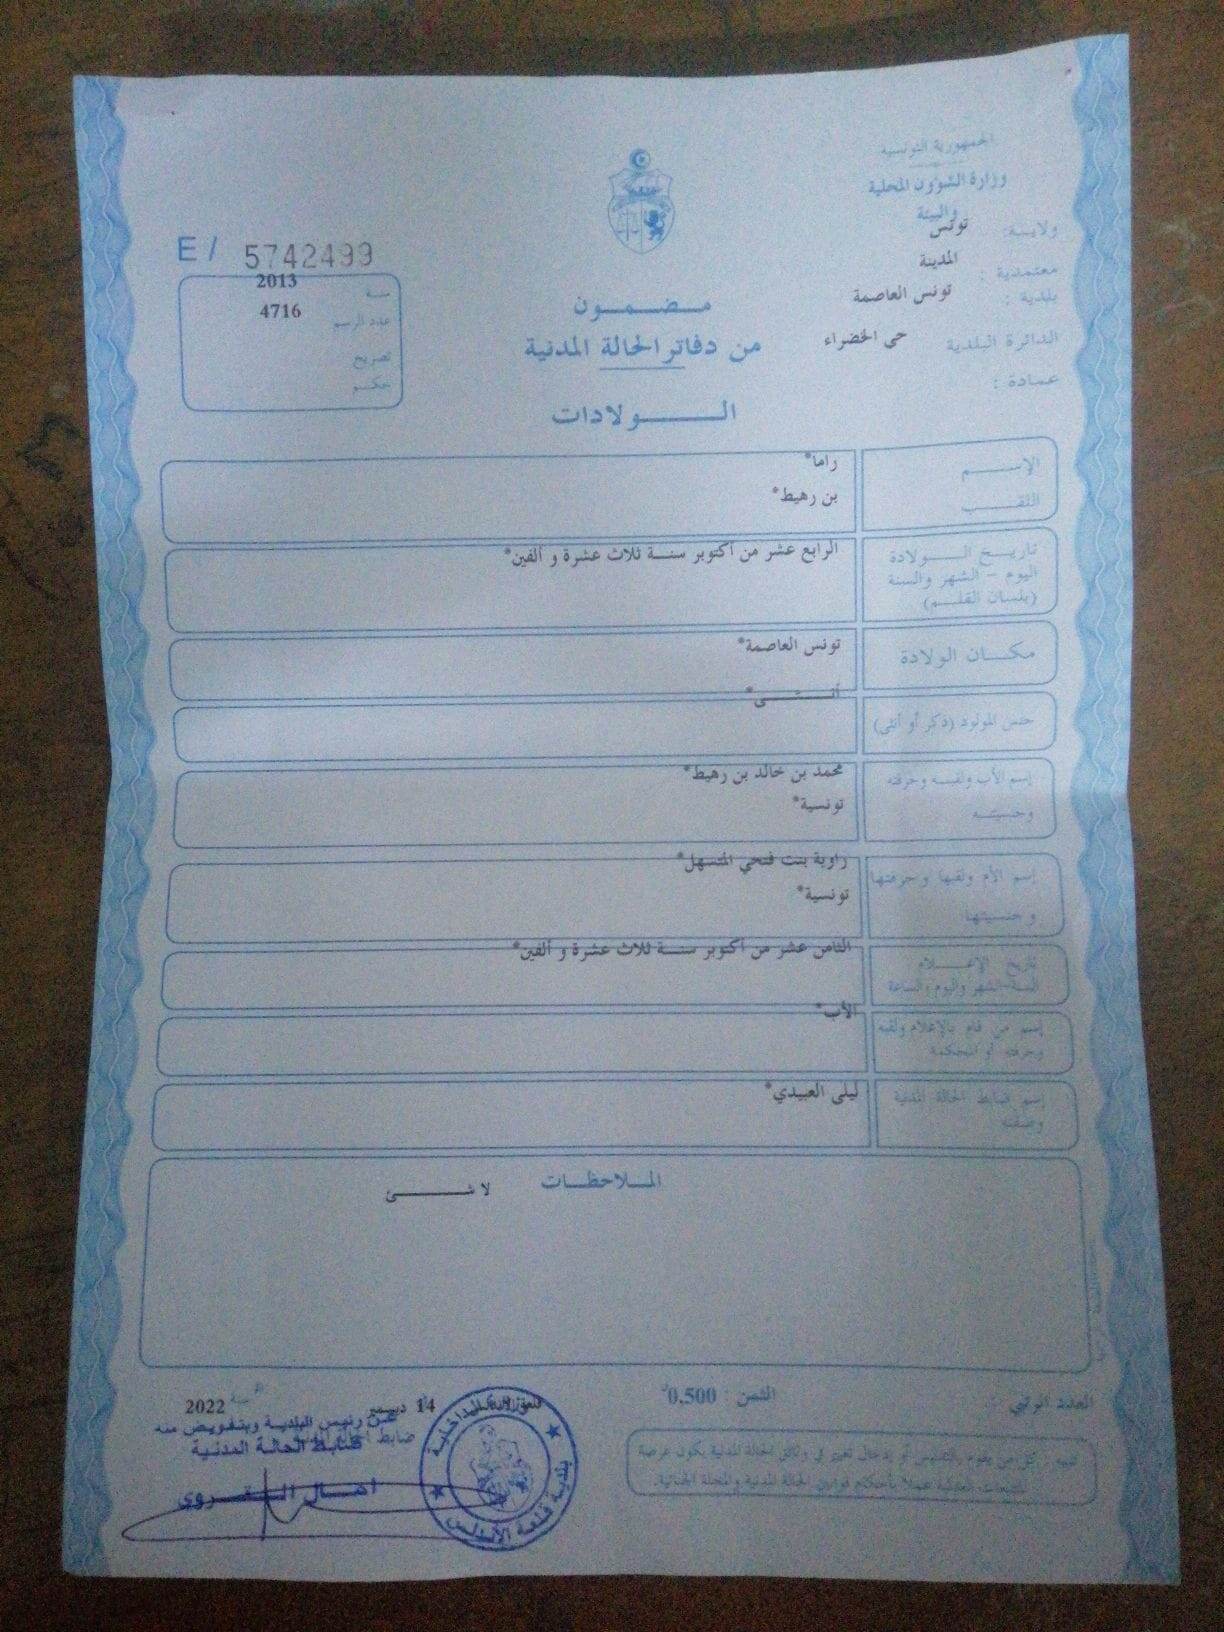 الجمهورية التونسية
وزارة الشؤون المحلية
والبيئة
ولايـــة: تونس
معتمدية : المدينة
بلدية : تونس العاصمة
الدائرة البلدية حي الخضراء
عمادة :
E / 5742499
سنة 2013
عدد الرسم 4716
تصريح
حكم
مـضـمـــون
من دفاتر الحالة المدنية
الـــولادات
الإســـم راما*
اللقـــب بن رهيط*
تاريـخ الـــولادة الرابع عشر من أكتوبر سنـــة ثلاث عشرة و ألفين*
اليوم - الشهر والسنة
(بلسان القلـــم)
مكـــان الولادة تونس العاصمة*
جنس المولود (ذكر أو أنثى) أنـــثـــى*
إسم الأب ولقبـه وحرفته محمد بن خالد بن رهيط*
وجنسيتـــه تونسية*
إسم الأم ولقبها وحرفتها راوية بنت فتحي المتسهل*
وجنسيتها تونسية*
تاريخ الإعـــلام الثامن عشر من أكتوبر سنـــة ثلاث عشرة و ألفين*
السنة-الشهر واليوم والساعة
إسم من قام بالإعلام ولقبه الأب*
وحرفته أو المحكمة
إسم ضابط الحالة المدنية ليلى العبيدي*
وصفته
المـلاحظـــات
لا شـــئ
العدد الرتبي :
الثمن : 0.500
14 ديسمبر 2022
عـن رئيس البلديـة وبتفويض منه
ضابط الحالة المدنية
بلدية قلعة الأندلس
تنبيه : كل من يقوم بالتدليس أو إدخال تغيير في وثائق الحالة المدنية يكون عرضة
للتتبعات العدلية عملا بأحكام قوانين الحالة المدنية والمجلة الجنائية.